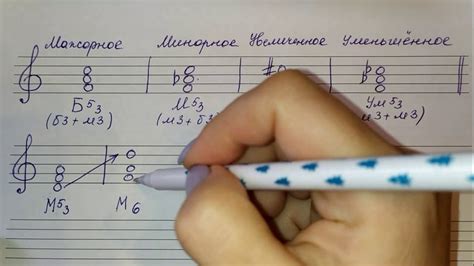 Мажорное Минорное Увеличенное Уменьшённое
Б5/3 М5/3 Ум5/3
(б3+м3) (м3+б3) м3+м3)
М5/3 М6